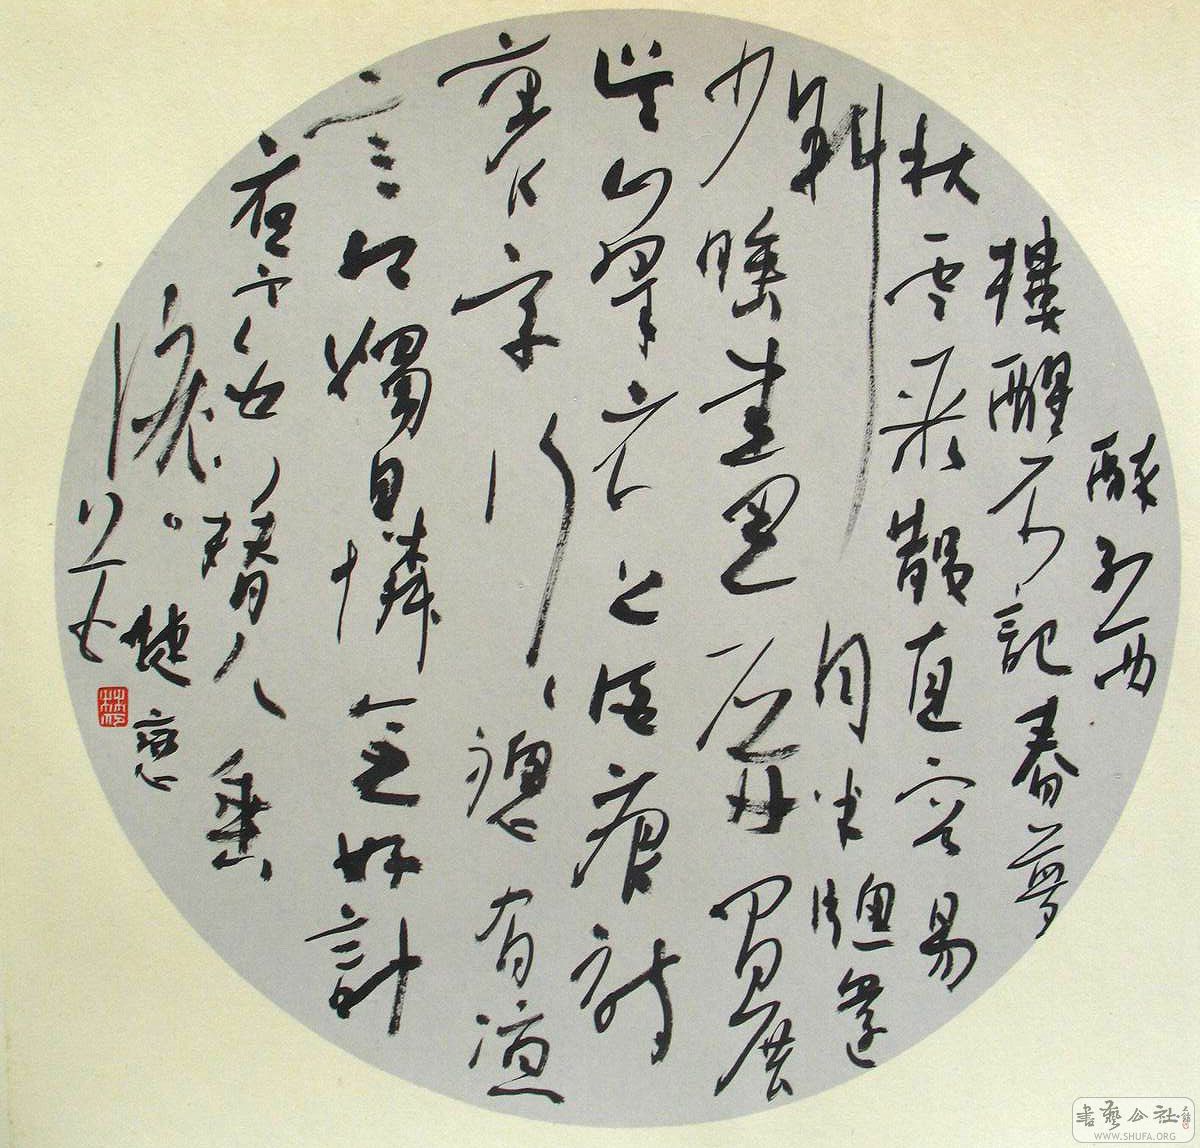 醉别西
樓醒不記春夢
秋雲聚散真容易
斜月半窗還
少睡畫屏閒展
吴山翠衣上酒痕詩
裏字行行總有凉
意紅燭自憐無好計
夜寒空替人垂
淚 蝶戀
花
書藝公社
WWW.SHUFA.ORG